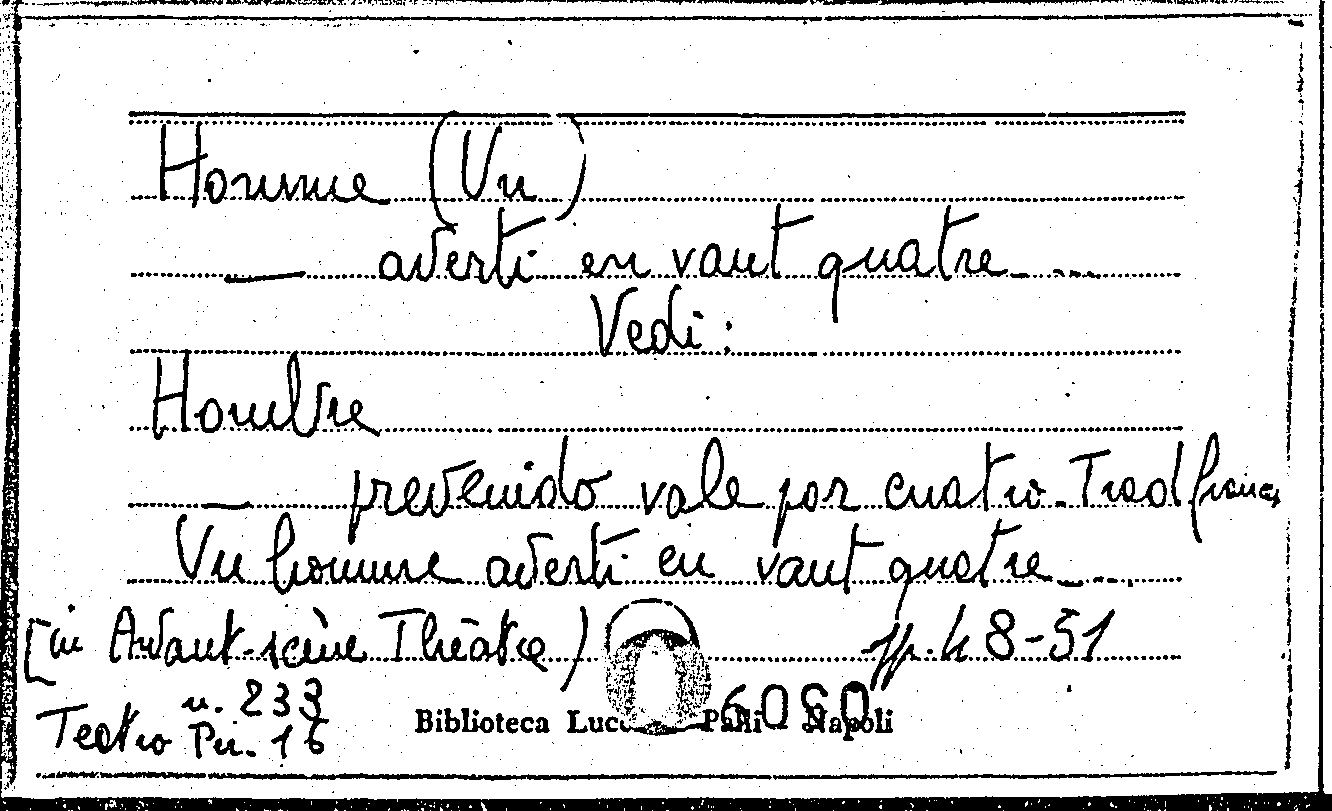 Homme (Un)
— averti en vaut quatre....
Vedi:
Hombre
— prevenido vale por cuatro. Trad franç
Un homme averti en vaut quatre....
[in Avant-scène Théâtre) pp. 48-51
n. 233
Teatro Per. 16
Biblioteca Lucchesi Palli - Napoli
6060